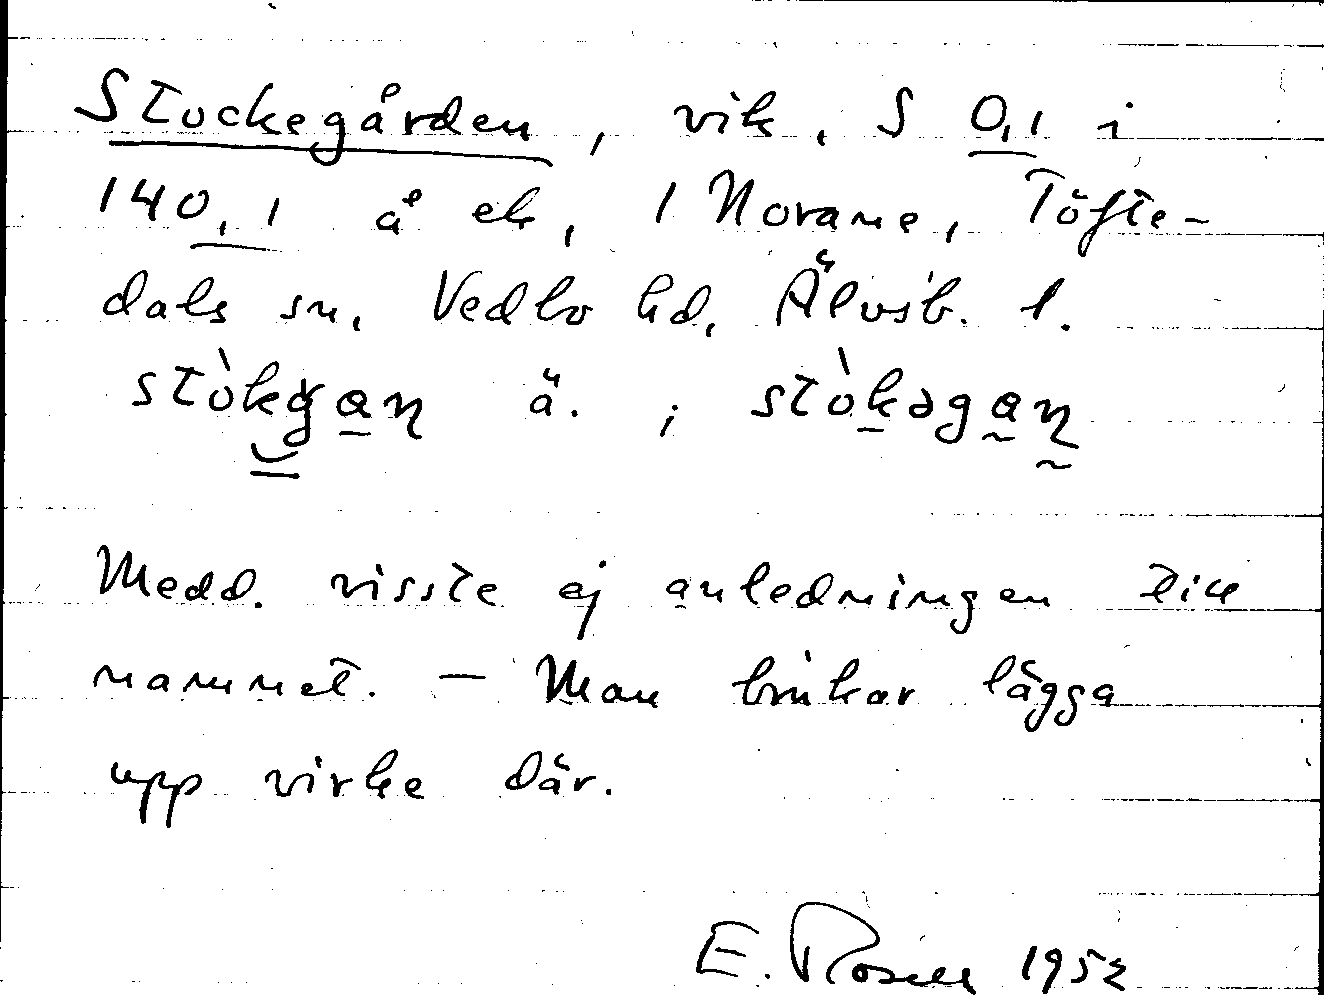 Stockegården, vik, S 0,1 i
140,1 å ek, 1 Norane, Töfte-
dals sn, Vedbo hd, Älvsb. l.
stòkgan ä. ; stòkəgan
Medd. visste ej anledningen till
namnet. – Man brukar lägga
upp virke där.
E. Rosell 1952